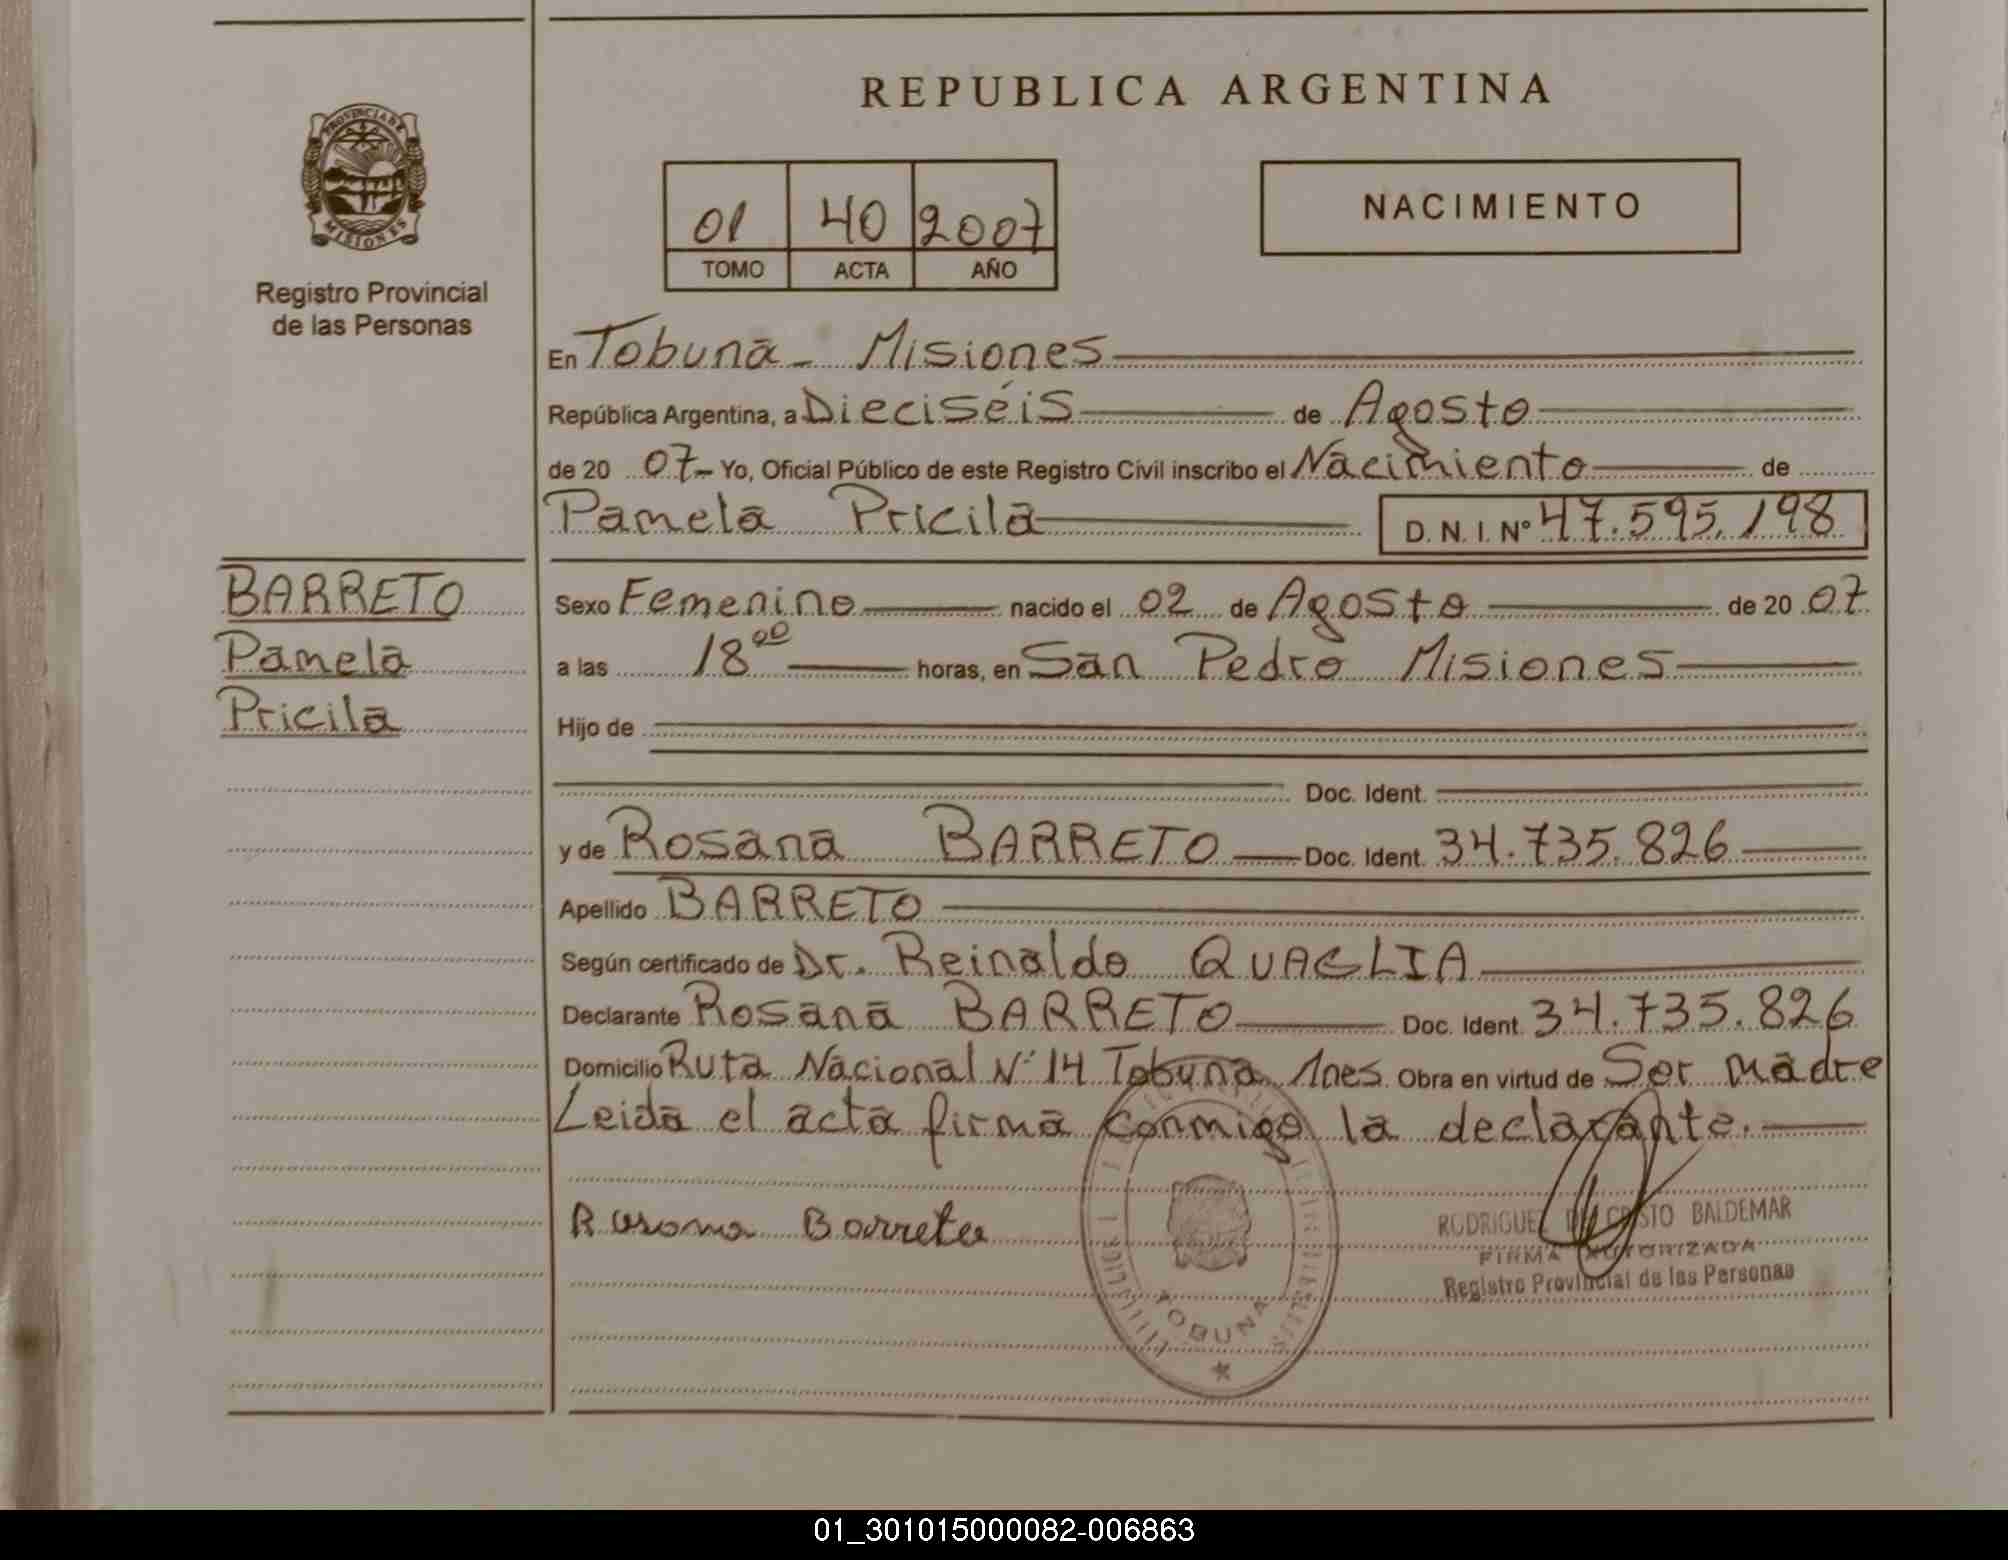 REPUBLICA ARGENTINA
PROVINCIA DE
MISIONES
Registro Provincial
de las Personas
01 40 2007
TOMO ACTA AÑO
NACIMIENTO
En Tobuna - Misiones
República Argentina, a Dieciséis de Agosto
de 20 07- Yo, Oficial Público de este Registro Civil inscribo el Nacimiento de
Pamela Pricila D. N. I. Nº 47.595.198
BARRETO
Pamela
Pricila
Sexo Femenino nacido el 02 de Agosto de 20 07
a las 18⁰⁰ horas, en San Pedro Misiones
Hijo de
Doc. Ident.
y de Rosana BARRETO Doc. Ident. 34.735.826
Apellido BARRETO
Según certificado de Dr. Reinaldo QUAGLIA
Declarante Rosana BARRETO Doc. Ident. 34.735.826
Domicilio Ruta Nacional Nº 14 Tobuna Mnes. Obra en virtud de Ser madre
Leida el acta firma conmigo la declarante.
Rosana Barreto
TOBUNA
RODRIGUEZ BALDEMAR
FIRMA AUTORIZADA
Registro Provincial de las Personas
01_301015000082-006863